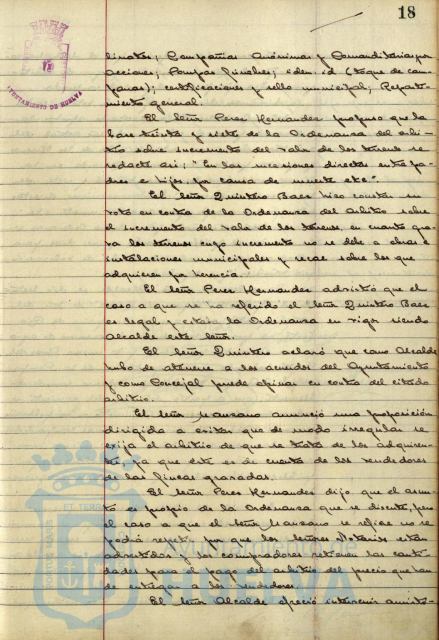 18
AYUNTAMIENTO DE HUELVA
Compañías Anónimas y Comanditarias por
acciones; Pompas fúnebres; idem. id (toque de cam-
panas); certificaciones y sello municipal; Reparti-
miento general.
El Señor Perez Hernandez propuso que la
base treinta y siete de la Ordenanza del arbi-
trio sobre incremento del valor de los terrenos se
redacte asi; "En las sucesiones directas entre pa-
dres e hijos por causa de muerte etc".
El Señor Quintero Baez hizo constar su
voto en contra de la Ordenanza del arbitrio sobre
el incremento del valor de los terrenos, en cuanto gra-
va los terrenos cuyo incremento no se debe a obras e
instalaciones municipales y recae sobre los que
adquieren por herencia.
El Señor Perez Hernandez advirtió que el
caso a que se ha referido el Señor Quintero Baez
es legal y estaba la Ordenanza en vigor siendo
Alcalde este Señor.
El Señor Quintero aclaró que como Alcalde
hubo de atenerse a los acuerdos del Ayuntamiento
y como Concejal puede opinar en contra del citado
arbitrio.
El Señor Manzano anunció una proposición
dirigida a evitar que de modo irregular se
exija el arbitrio de que se trata de los adquiren-
tes, ya que este es de cuenta de los vendedores
de las fincas gravadas.
El Señor Perez Hernandez dijo que el asun-
to es propio de la Ordenanza que se discute, pero
el caso a que el Señor Manzano se refiere no se
podrá repetir por que los Señores Notarios están
advertidos y los compradores retienen las canti-
dades para el pago del arbitrio del precio que han
de entregar a los vendedores.
El Señor Alcalde ofreció intervenir amisto-